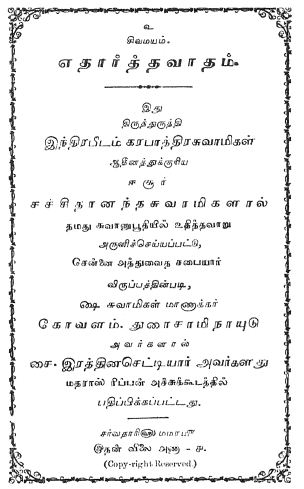 உ
சிவமயம்.
எதார்த்தவாதம்.
இது
திருத்துருத்தி
இந்திரபீடம் கரபாத்திரசுவாமிகள்
ஆதீனத்துக்குரிய
ஈசூர்
சச்சிதானந்தசுவாமிகளால்
தமது சுவானுபூதியில் உதித்தவாறு
அருளிச்செய்யப்பட்டு,
சென்னை அத்துவைத சபையார்
விருப்பத்தின்படி,
ஷை சுவாமிகள் மாணாக்கர்
கோவளம். துரைசாமிநாயுடு
அவர்களால்
சை. இரத்தினசெட்டியார் அவர்களது
மதராஸ் ரிப்பன் அச்சுக்கூடத்தில்
பதிப்பிக்கப்பட்டது.
சர்வதாரிஸ்ரீ
இதன் விலை அணா - ச.
(Copy-right Reserved.)